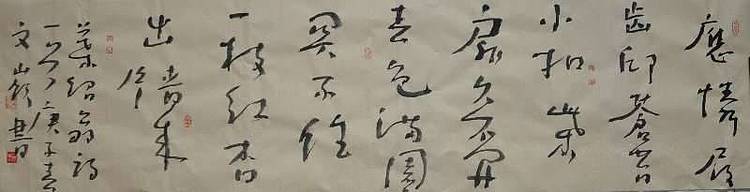 應憐屐
齒印蒼苔
小扣柴
扉久不開
春色滿園
關不住
一枝紅杏
出墻来
葉紹翁詩
一首庚子春
文山書